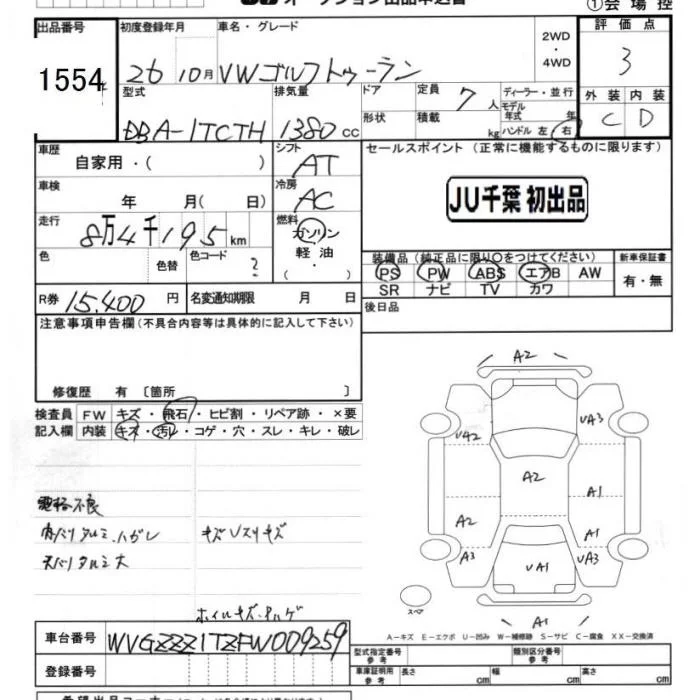 オークション出品申込書
①会場控
出品番号
1554
初度登録年月
車名・グレード
26 10月 VWゴルフトゥーラン
2WD
・
4WD
評価点
3
型式
排気量
ドア
定員
7人
ディーラー・並行
DBA-1TCTH
1380cc
形状
積載
kg
モデル年式 年
ハンドル 左・右
外装 内装
C D
車歴
自家用・( )
シフト
AT
セールスポイント (正常に機能するものに限ります)
車検
年 月( 日)
冷房
AC
JU千葉 初出品
走行
8万4千195km
燃料
ガソリン
軽油
( ・ )
色
色替
色コード
?
装備品 (純正品に限り○をつけてください)
新車保証書
PS PW ABS エアB AW
SR ナビ TV カワ
有・無
R券 15,400 円
名変通知期限 月 日
後日品
注意事項申告欄 (不具合内容等は具体的に記入して下さい)
修復歴 有 〔箇所 〕
検査員
記入欄
FW キズ・飛石・ヒビ割・リペア跡・×要
内装 キズ・汚レ・コゲ・穴・スレ・キレ・破レ
A2
UA2
UA3
A2
A1
A2
A1
A3
UA1
UA3
A1
スペア
電格不良
内バリタルミ・ハガレ キズUスリキズ
天バリタルミ大
ホイルキズ・
A-キズ E-エクボ U-凹み W-補修跡 S-サビ C-腐食 XX-交換済
車台番号
WVGZZZ1TZFW009259
登録番号
型式指定番号
参考
類別区分番号
参考
車庫証明用
参考
長さ cm
幅 cm
高さ cm
希望出品コーナー